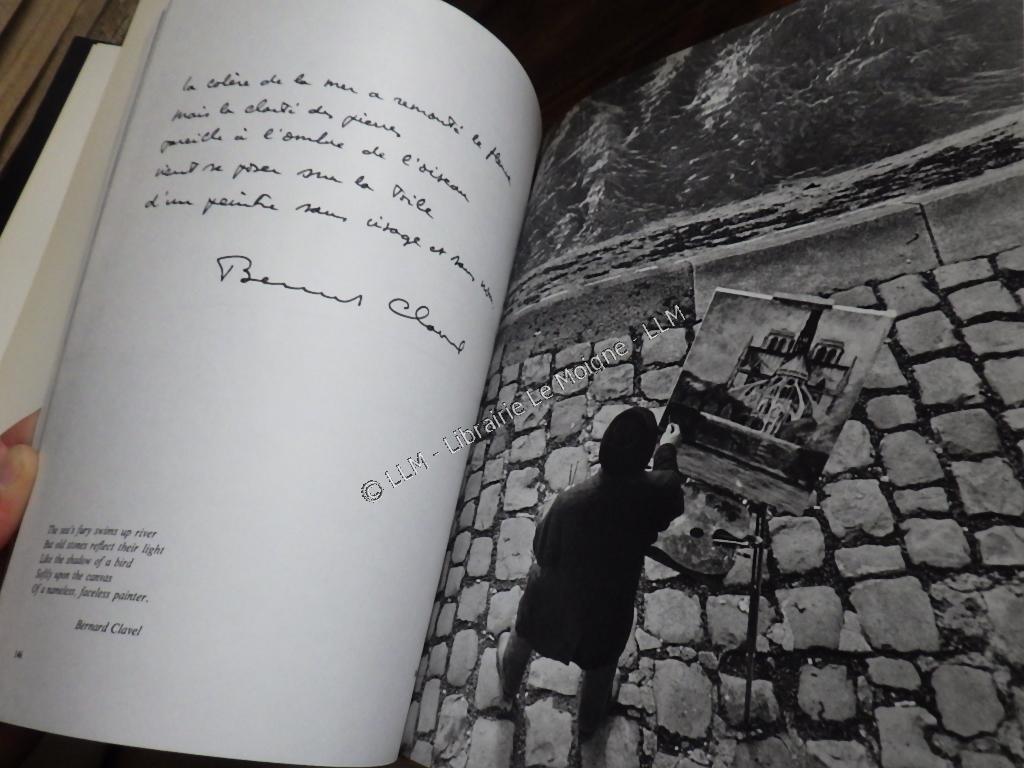 la colère de la mer a remonté le fleuve
mais la clarté des pierres
pareille à l'ombre de l'oiseau
vient se poser sur la toile
d'un peintre sans visage et sans nom
Bernard Clavel
The sea's fury swims up river
But old stones reflect their light
Like the shadow of a bird
Softly upon the canvas
Of a nameless, faceless painter.
Bernard Clavel
146
© LLM - Librairie Le Moigne - LLM